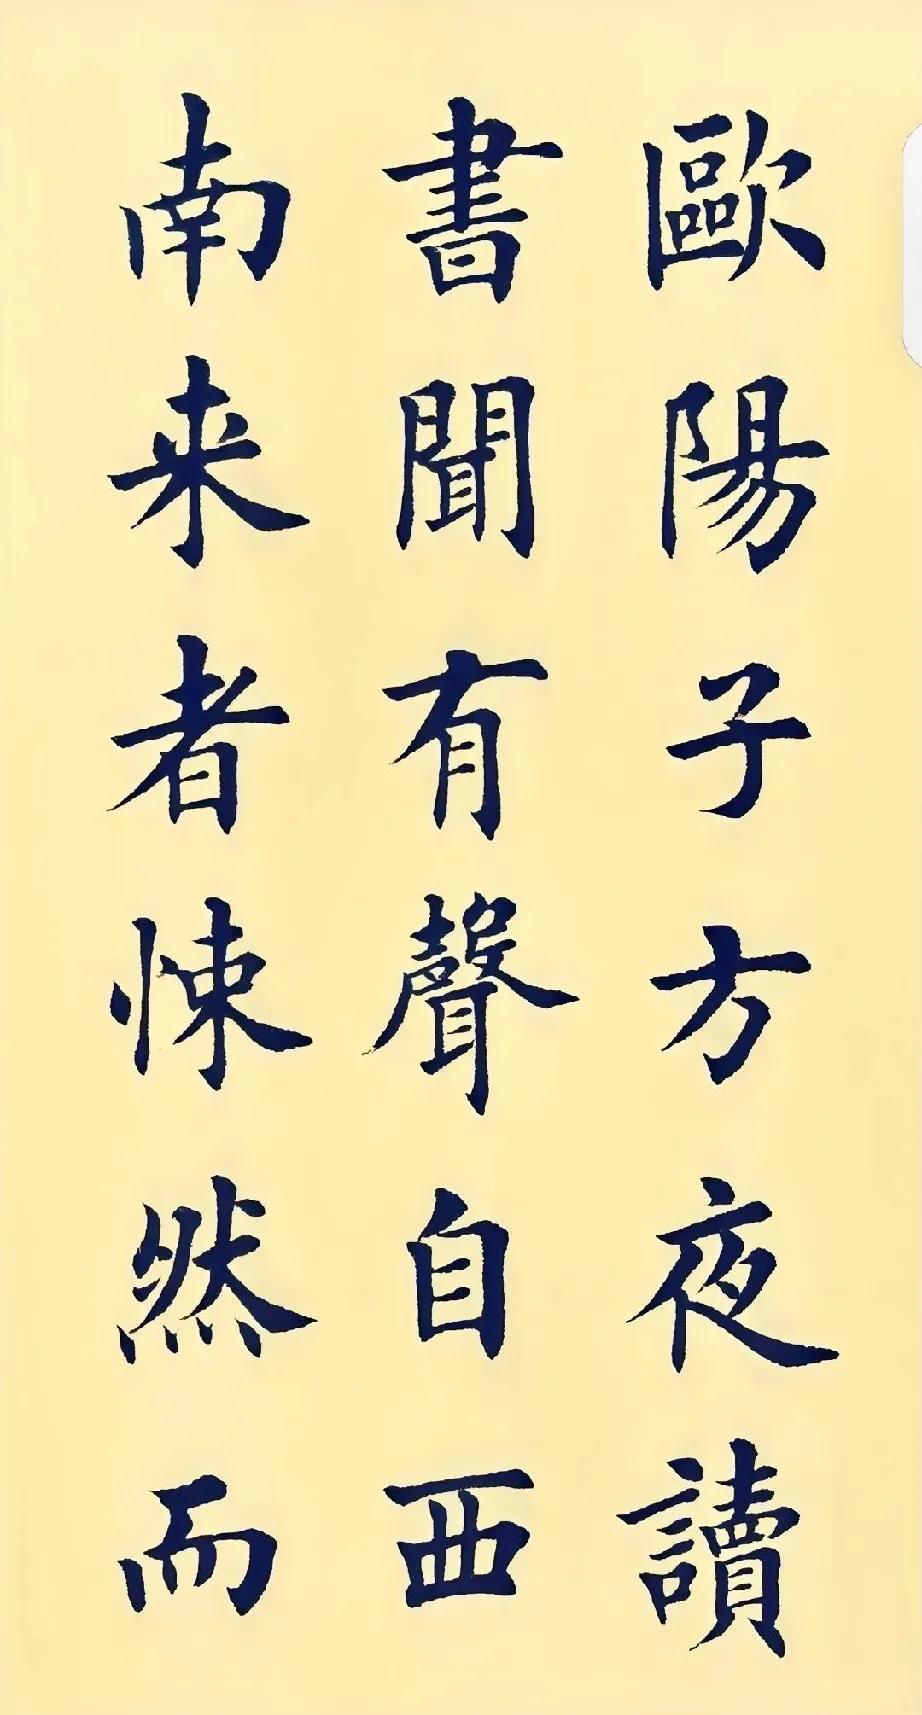 歐陽子方夜讀
書聞有聲自西
南来者悚然而